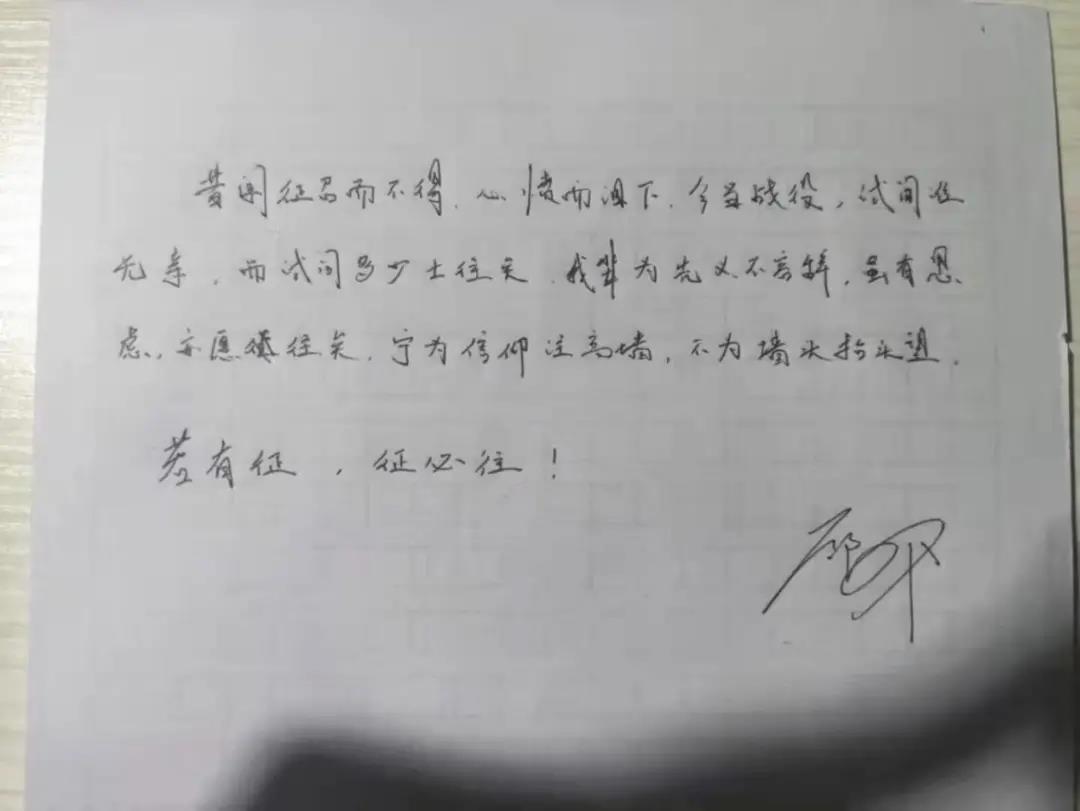 昔闻征召而不得,心愤而泪下,今至战役,试问谁
无亲,而试问多少士往矣,我辈为先义不容辞,虽有思
虑,亦愿往矣,宁为信仰注高墙,不为墙头抬头望。
若有征,征必往!